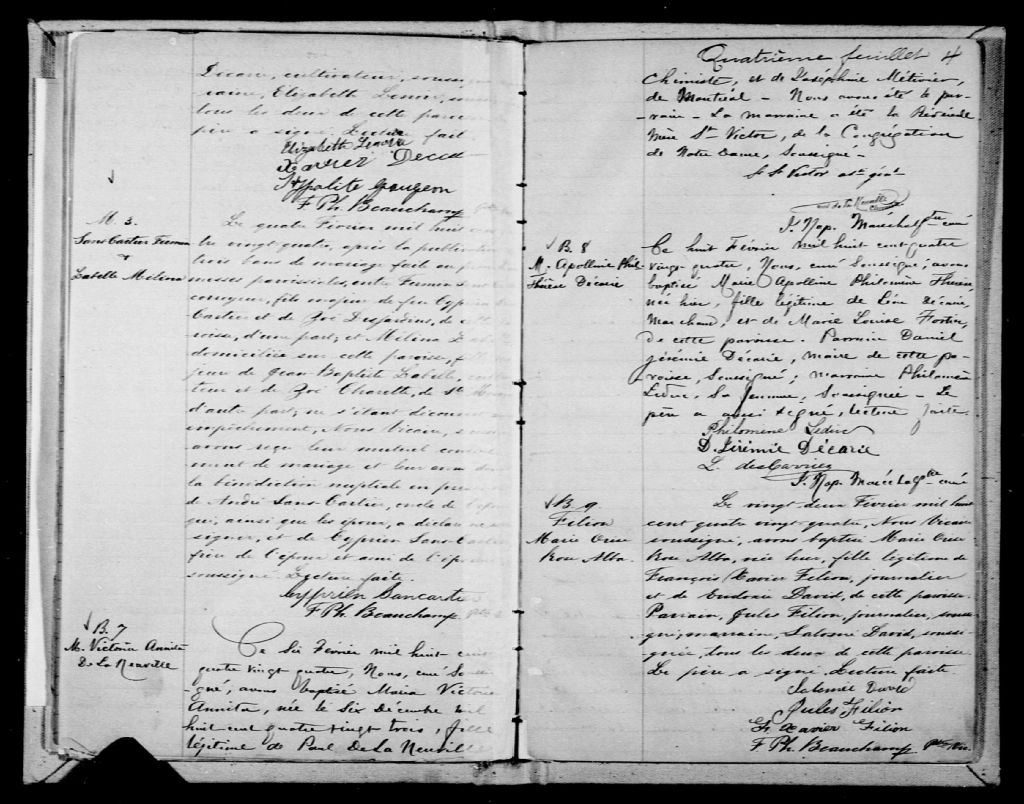 Décarie, cultivateur, soussigné
raine, Elizabeth Lenoir,
tous les deux de cette paroisse
père a signé. Lecture faite
Elizabeth Lenoir
Xavier Deca
Hyppolite Gougeon
F Ph. Beauchamp Ptre
M. 3.
Sans Cartier Furmin
&
Labelle Melina
Le quatre Février mil huit cent
tre vingt quatre, après la publication
trois bans de mariage fait au
messes paroissiales, entre Furmin Sans
fils majeur de feu Cyprien
Cartier et de Zoé Desjardins, de cette
roisse, d'une part; et Mélina Labelle
domiciliée sur cette paroisse, fille
jeure de Jean Baptiste Labelle,
teur et de Zoé Charette, de St.
d'autre part; ne s'étant découvert
empêchement, Nous Vicaire,
avons reçu leur mutuel consente
ment de mariage et leur avons do
la bénédiction nuptiale en pré
de André Sans-Cartier, oncle de l'époux
qui, ainsi que les époux, a déclaré ne
signer, et de Cyprien Sans Cartier
frère de l'époux et ami de l'épouse
soussigné. Lecture faite.
Cyprien Sancartier
F Ph. Beauchamp Ptre
B. 7
M. Victoria Annita
De La Neuville
Ce Six Février mil huit cent
quatre vingt quatre, Nous, curé Sous
-signé, avons baptisé Maria Victoria
Annita, née le Six Décembre mil
huit cent quatre vingt trois, fille
légitime de Paul De La Neuville
Quatrième feuillet 4
Chimiste, et de Joséphine Métivier,
de Montréal - Nous avons été le par-
-rain - La marraine a été la Révérende
Mère St Victor, de la Congrégation
de Notre Dame, Soussigné -
Sr St Victor asst génl
de La Neuville
J. Nap. Maréchal ptre curé
B. 8
M. Apolline Phil
Thérèse Décarie
Ce huit Février mil huit cent quatre
vingt quatre, Nous, curé Soussigné, avons
baptisé Marie Apolline Philomène Thérèse,
née hier, fille légitime de Léon Décarie,
Marchand, et de Marie Louise Fortin,
de cette paroisse. Parrain Daniel
Jérémie Décarie, maire de cette pa-
roisse, Soussigné; marraine Philomène
Leduc, Sa femme, Soussignée - Le
père a aussi signé, lecture faite.
Philomene Leduc
D. Jérémie Décarie
L. des Carries
J. Nap. Maréchal ptre curé
B. 9
Filion
Marie Orise
Rose Alba
Le vingt deux Février mil huit
cent quatre vingt quatre, Nous Vicaire
soussigné, avons baptisé Marie Orise
Rose Alba, née hier, fille légitime de
François Xavier Filion, journalier
et de Eudoxie David, de cette paroisse.
Parrain, Jules Filion, journalier, soussi-
gné; marraine, Salomé David, soussi-
gnée, tous les deux de cette paroisse.
Le père a signé. Lecture faite.
Salomée David
Jules Filion
F. Xavier Filion
F Ph. Beauchamp Ptre Vic.